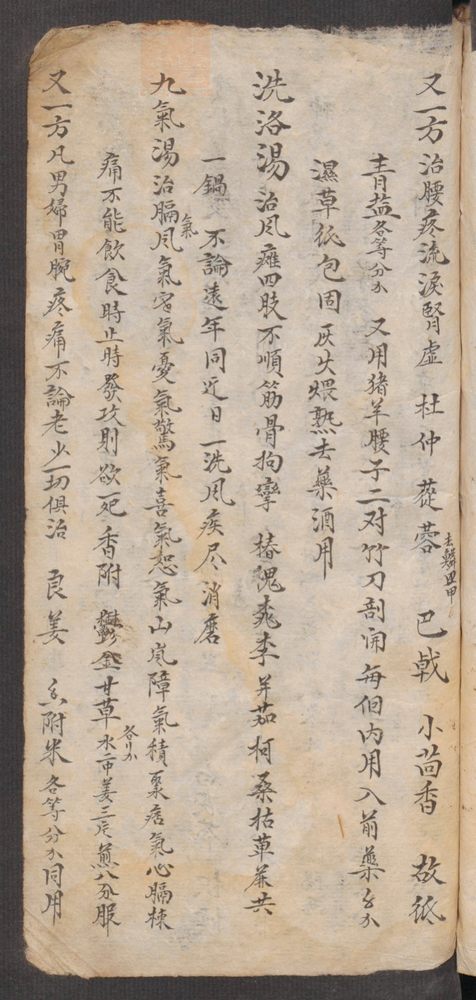 又一方治腰疼流淚腎虛 杜仲 蓯蓉去鱗甲 巴戟 小茴香 故紙
青盐各等分 又用猪羊腰子二对竹刀剖開每個内用入前藥
濕草紙包固灰火煨熟去藥酒用
洗洛湯 治風癱四肢不順筋骨拘攣 椿槐桃李并茄柯桑枯草蒹共
一鍋 不論遠年同近日一洗風疾尽消磨
九氣湯治膈氣風氣寒氣憂氣驚氣喜氣怒氣山嵐障氣積聚痞氣心膈
痛不能飲食時止時發攻則欲死 香附 鬱金 甘草 水二中姜三片煎八分服
又一方凡男婦胃腕疼痛不論老少一切俱治 良姜 香附米各等分同用